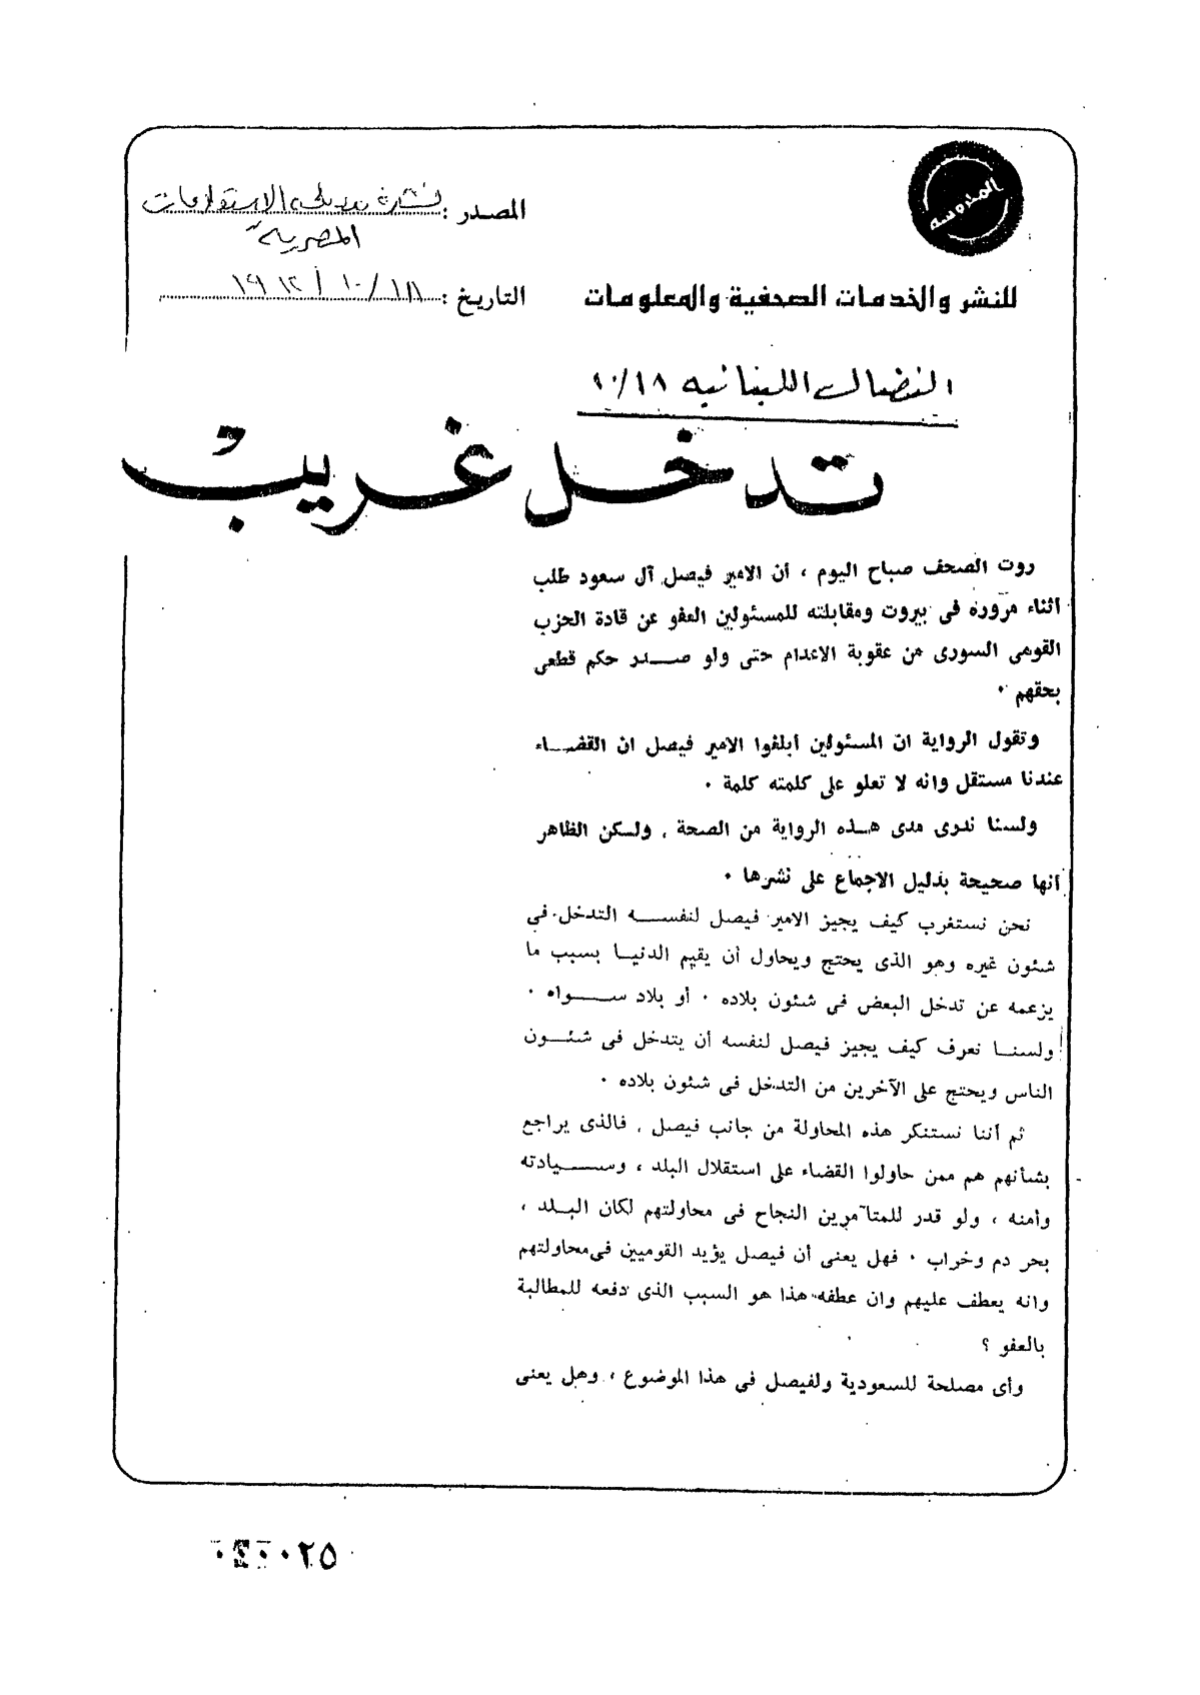 المحروسة
المصدر : نشرة الاستعلامات
المصرية
للنشر والخدمات الصحفية والمعلومات
التاريخ : ١٨/ ١٠/ ١٩٦٢
النضال اللبنانيه ١٠/١٨
تدخل غريب
روت الصحف صباح اليوم ، أن الامير فيصل آل سعود طلب
اثناء مروره فى بيروت ومقابلته للمسئولين العفو عن قادة الحزب
القومى السورى من عقوبة الاعدام حتى ولو صــدر حكم قطعى
بحقهم ٠
وتقول الرواية ان المسئولين أبلغوا الامير فيصل ان القضــاء
عندنا مستقل وانه لا تعلو على كلمته كلمة ٠
ولسنا ندرى مدى هــذه الرواية من الصحة ، ولـكن الظاهر
انها صحيحة بدليل الاجماع على نشرها ٠
نحن نستغرب كيف يجيز الامير فيصل لنفســه التدخل فى
شئون غيره وهو الذى يحتج ويحاول أن يقيم الدنيـا بسبب ما
يزعمه عن تدخل البعض فى شئون بلاده ٠ أو بلاد ســواه ٠
ولسنــا نعرف كيف يجيز فيصل لنفسه أن يتدخل فى شئــون
الناس ويحتج على الآخرين من التدخل فى شئون بلاده ٠
ثم أننا نستنكر هذه المحاولة من جانب فيصل ، فالذى يراجع
بشأنهم هم ممن حاولوا القضاء على استقلال البلد ، وســيادته
وأمنه ، ولو قدر للمتآمرين النجاح فى محاولتهم لكان البــلد ،
بحر دم وخراب ٠ فهل يعنى أن فيصل يؤيد القوميين فى محاولتهم
وانه يعطف عليهم وان عطفه هذا هو السبب الذى دفعه للمطالبة
بالعفو ؟
وأى مصلحة للسعودية ولفيصل فى هذا الموضوع ، وهل يعنى